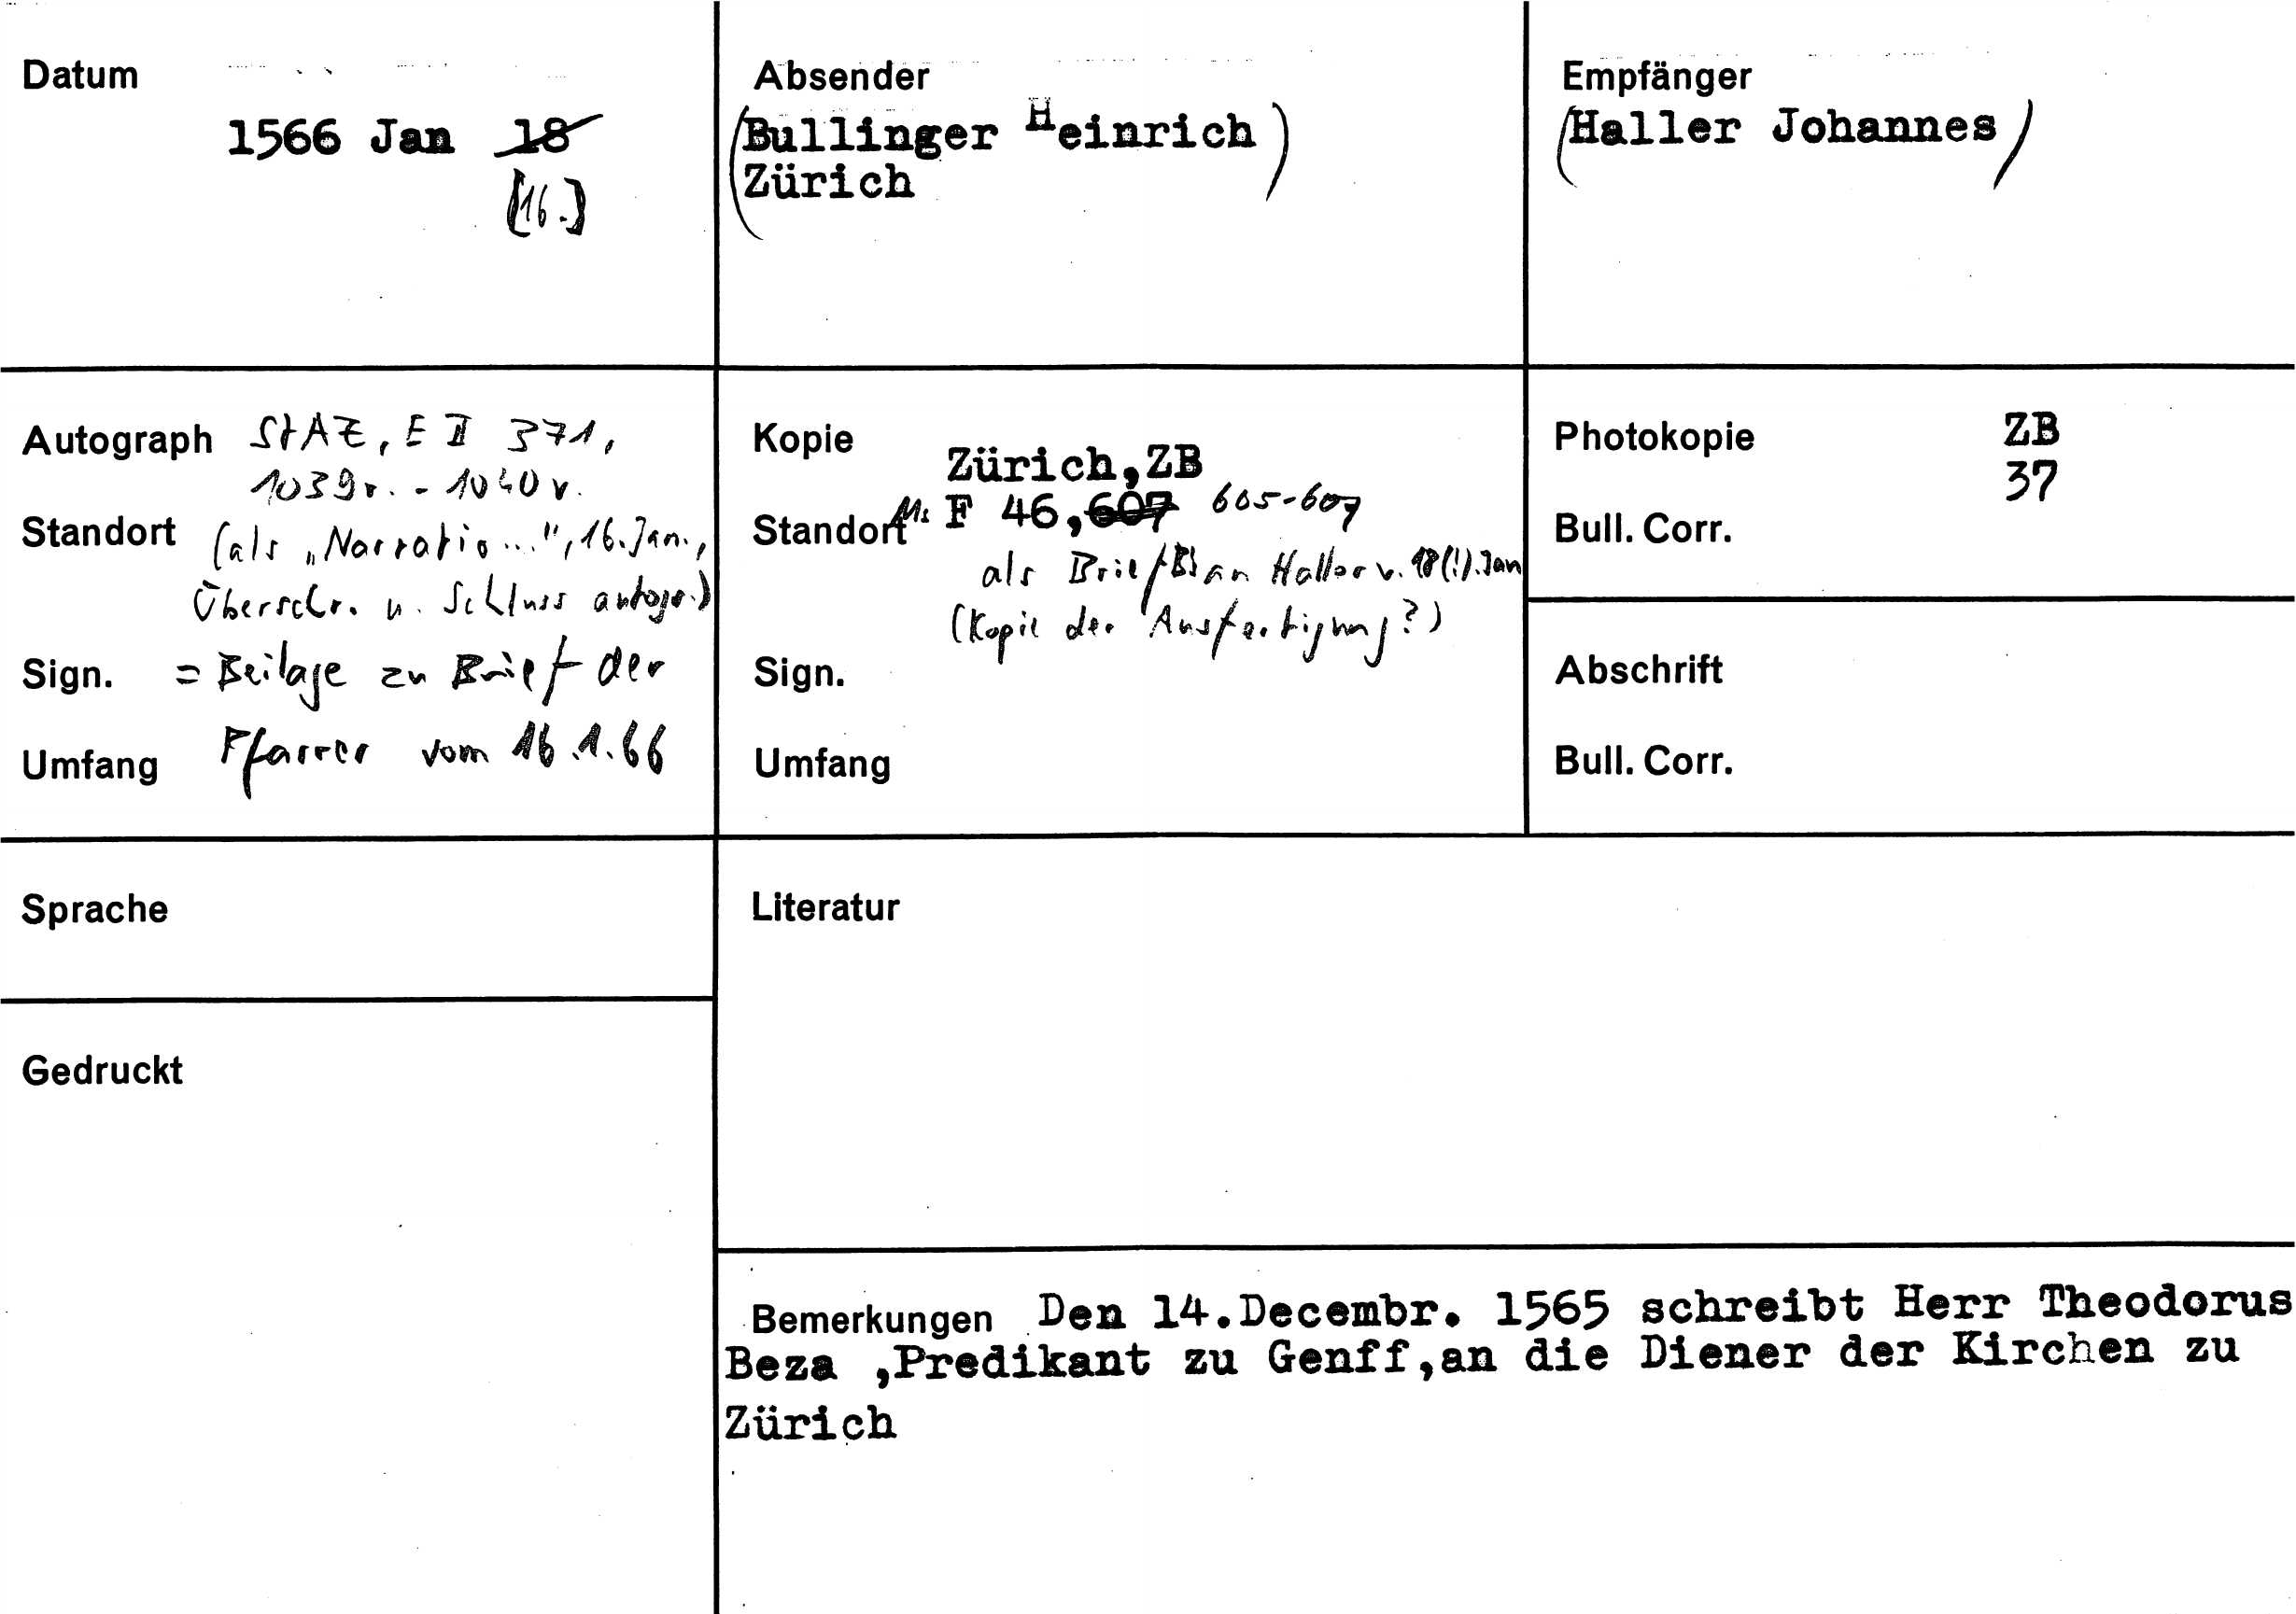 Datum
1566 Jan 18
[16.]
Absender
(Bullinger Heinrich)
Zürich
Empfänger
(Haller Johannes)
Autograph StAZ, E II 371,
1039r. - 1040v.
Standort (als „Narratio...", 16. Jan.,
Überschr. u. Schluss autogr.)
Sign. = Beilage zu Brief der
Umfang Pfarrer vom 16.1.66
Kopie
Zürich,ZB
Standort Ms F 46,607 605-607
als Brief Bs an Haller v. 18(!). Jan
(Kopie der Ausfertigung?)
Sign.
Umfang
Photokopie ZB
37
Bull. Corr.
Abschrift
Bull. Corr.
Sprache
Literatur
Gedruckt
Bemerkungen Den 14.Decembr. 1565 schreibt Herr Theodorus
Beza ,Predikant zu Genff,an die Diener der Kirchen zu
Zürich